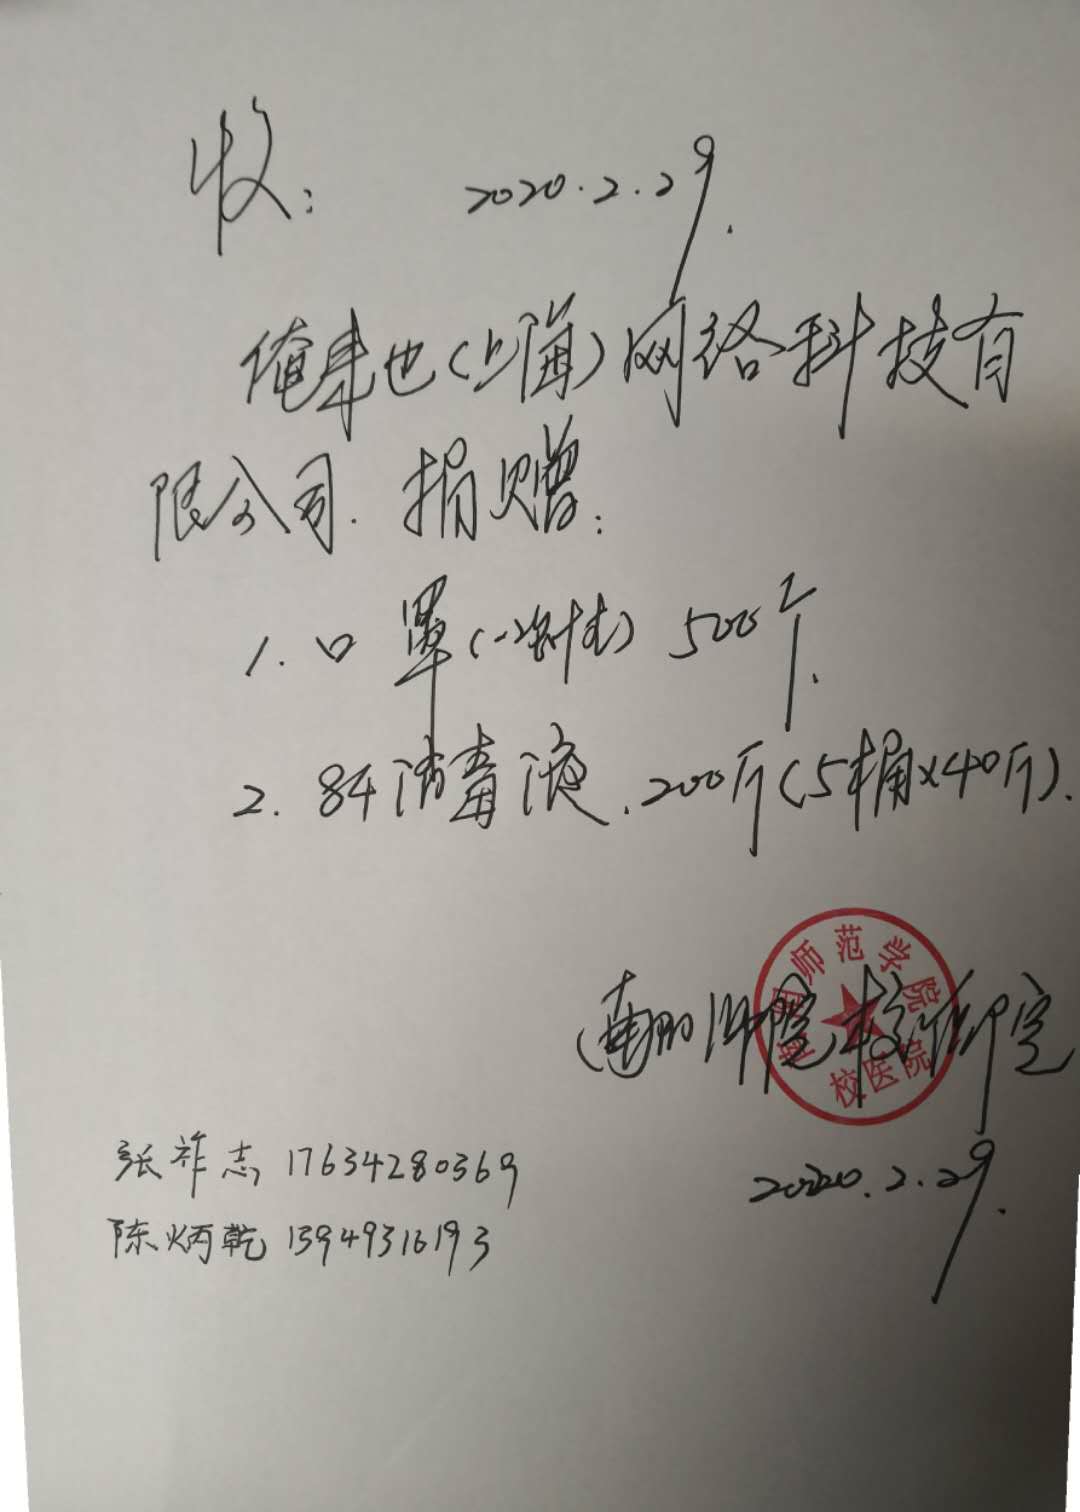 收: 2020.2.29.
俺来也(上海)网络科技有
限公司. 捐赠:
1. 口罩(一次性) 500个.
2. 84消毒液. 200斤(5桶×40斤).
师范学院
校医院
师院校医院
2020.2.29.
张祚志 17634280369
陈炳乾 13949316193